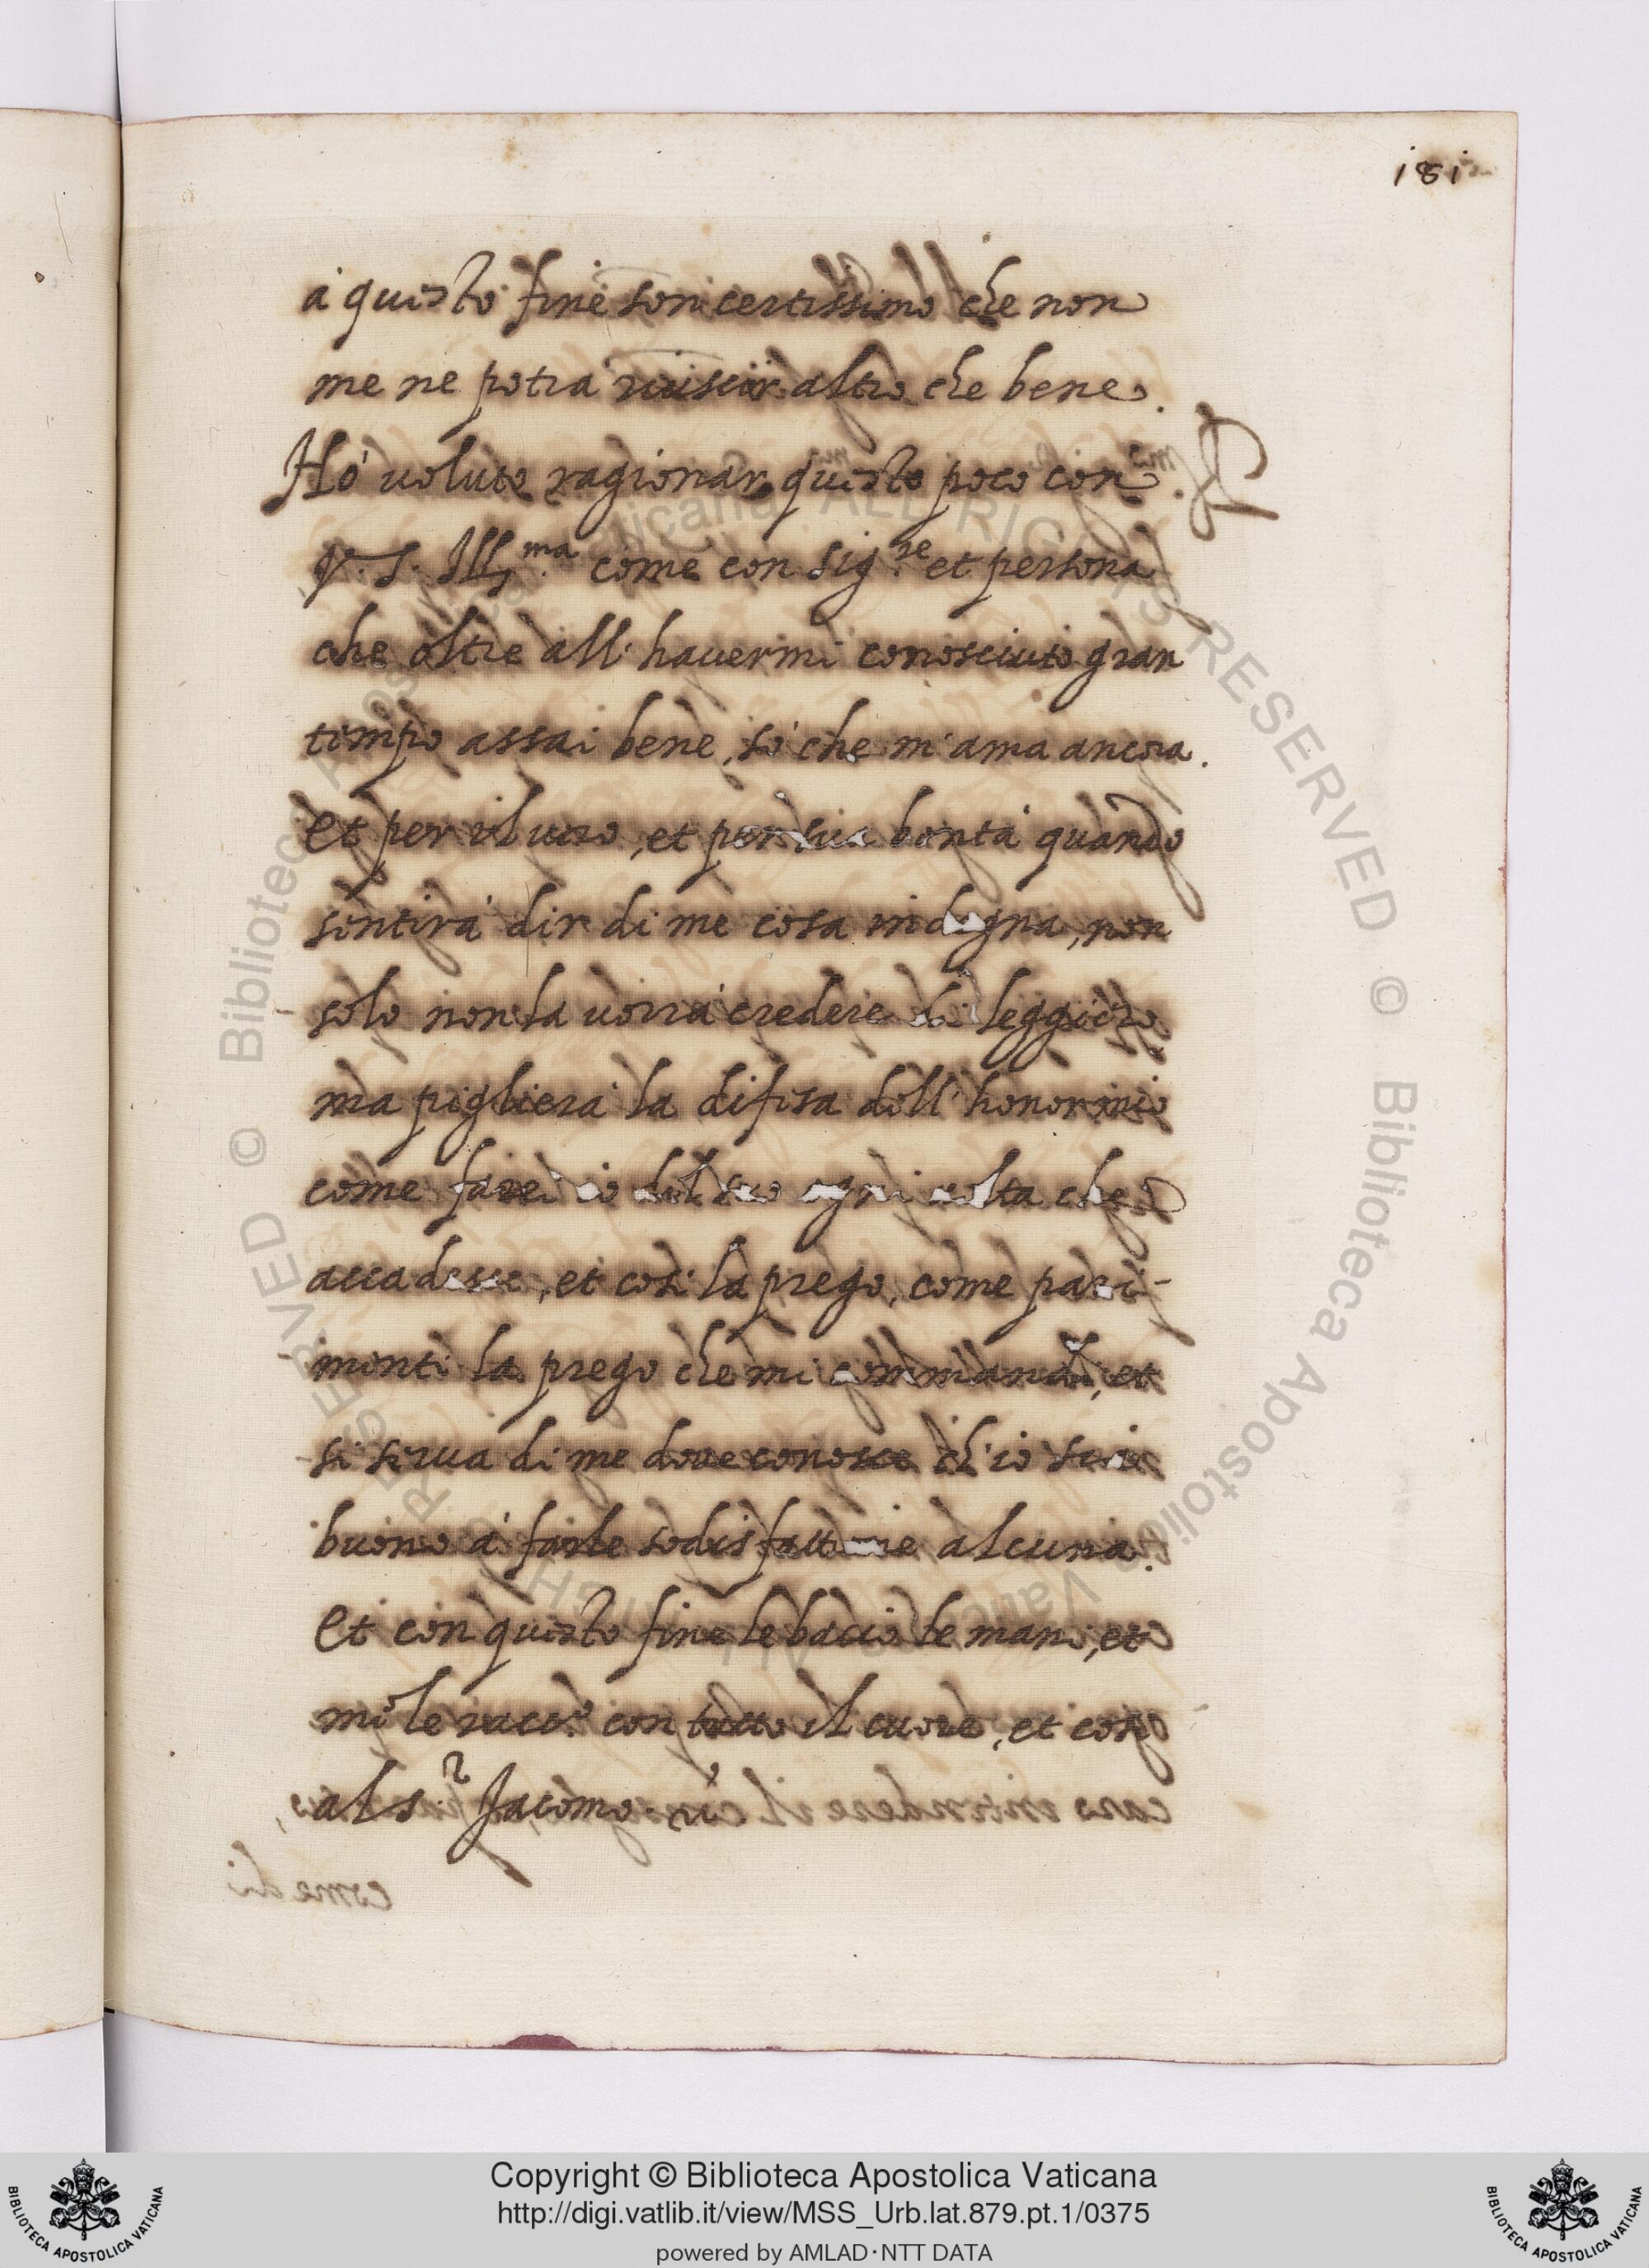 181
à questo fine son certissimo che non
me ne potrà riuscir altro che bene.
Hò voluto ragionar questo poco con
V. S. Ill.ma come con Sig.re et persona
che oltre all' havermi conosciuto gran
tempo assai bene, sò che m'ama ancora.
Et per il vero, et per sua bontà quando
sentirà dir di me cosa indegna, non
solo non la vorrà credere di leggiero
ma piglierà la difesa dell' honor mio
come farei io del suo ogni volta che
accadesse, et così la prego, come pari-
menti la prego che mi commandi, et
si serva di me dove conosce ch'io sia
buono à farle sodisfattione alcuna.
Et con questo fine le bacio le mani, et
mi le racc.do con tutto il cuore, et così
al s.r Jacomo.
Copyright © Biblioteca Apostolica Vaticana
http://digi.vatlib.it/view/MSS_Urb.lat.879.pt.1/0375
powered by AMLAD·NTT DATA
BIBLIOTECA APOSTOLICA VATICANA
BIBLIOTECA APOSTOLICA VATICANA